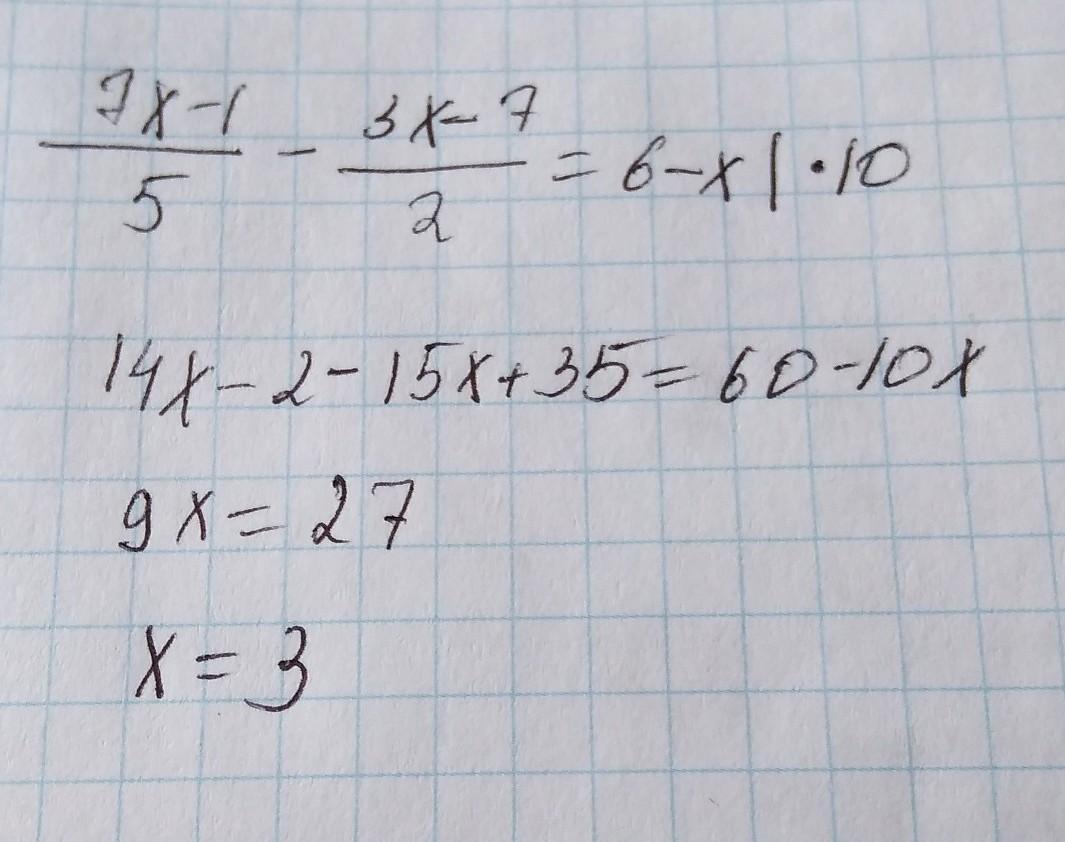 (7x-1)/5 - (3x-7)/2 = 6-x | · 10
14x - 2 - 15x + 35 = 60 - 10x
9x = 27
x = 3